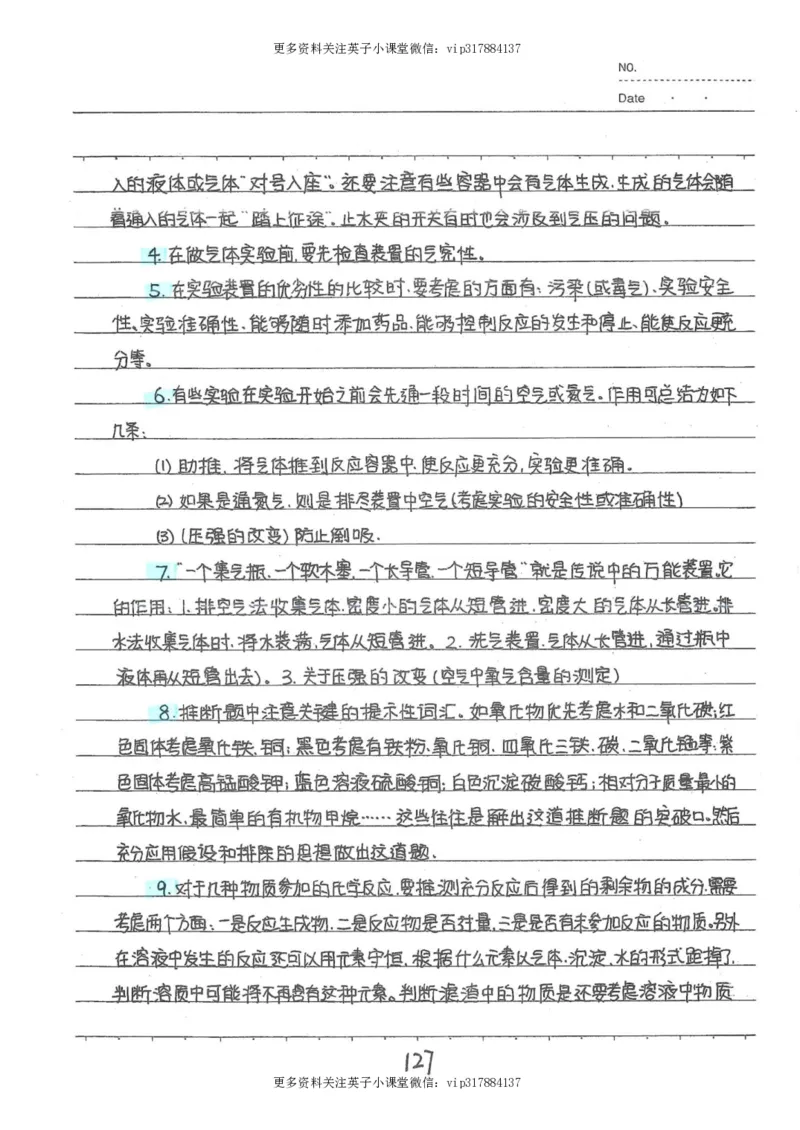 更多资料关注英子小课堂微信：vip317884137
NO.
Date · ·
入的液体或气体"对号入座"。还要注意有些容器中会有气体生成,生成的气体会随
着通入的气体一起"踏上征途"。止水夹的开关有时也会涉及到气压的问题。
4. 在做气体实验前,要先检查装置的气密性。
5. 在实验装置的优劣性的比较时,要考虑的方面有：污染(或毒气)、实验安全
性、实验准确性、能够随时添加药品、能够控制反应的发生和停止、能使反应更充
分等。
6.有些实验在实验开始之前会先通一段时间的空气或氮气。作用可总结为如下
几条：
(1) 助推, 将气体推到反应容器中,使反应更充分,实验更准确。
(2) 如果是通氮气,则是排尽装置中空气(考虑实验的安全性或准确性)
(3) (压强的改变) 防止倒吸.
7."一个集气瓶、一个软木塞,一个长导管,一个短导管"就是传说中的万能装置。它
的作用：1.排空气法收集气体,密度小的气体从短管进,密度大的气体从长管进。排
水法收集气体时,将水装满,气体从短管进。2. 洗气装置,气体从长管进,通过瓶中
液体再从短管出去)。3. 关于压强的改变(空气中氧气含量的测定)
8.推断题中注意关键的提示性词汇。如氧化物优先考虑水和二氧化碳;红
色固体考虑氧化铁、铜；黑色考虑有铁粉、氧化铜、四氧化三铁、碳、二氧化锰等；紫
色固体考虑高锰酸钾；蓝色溶液硫酸铜；白色沉淀碳酸钙；相对分子质量最小的
氧化物水,最简单的有机物甲烷……这些往往是解出这道推断题的突破口。然后
充分应用假设和排除的思想做出这道题.
9.对于几种物质参加的化学反应,要推测充分反应后得到的剩余物的成分,需要
考虑两个方面：一是反应生成物,二是反应物是否过量,三是是否有未参加反应的物质。另外
在溶液中发生的反应还可以用元素守恒,根据什么元素以气体、沉淀、水的形式跑掉了,
判断溶质中可能将不再含有这种元素。判断滤渣中的物质是还要考虑溶液中物质
127
更多资料关注英子小课堂微信：vip317884137